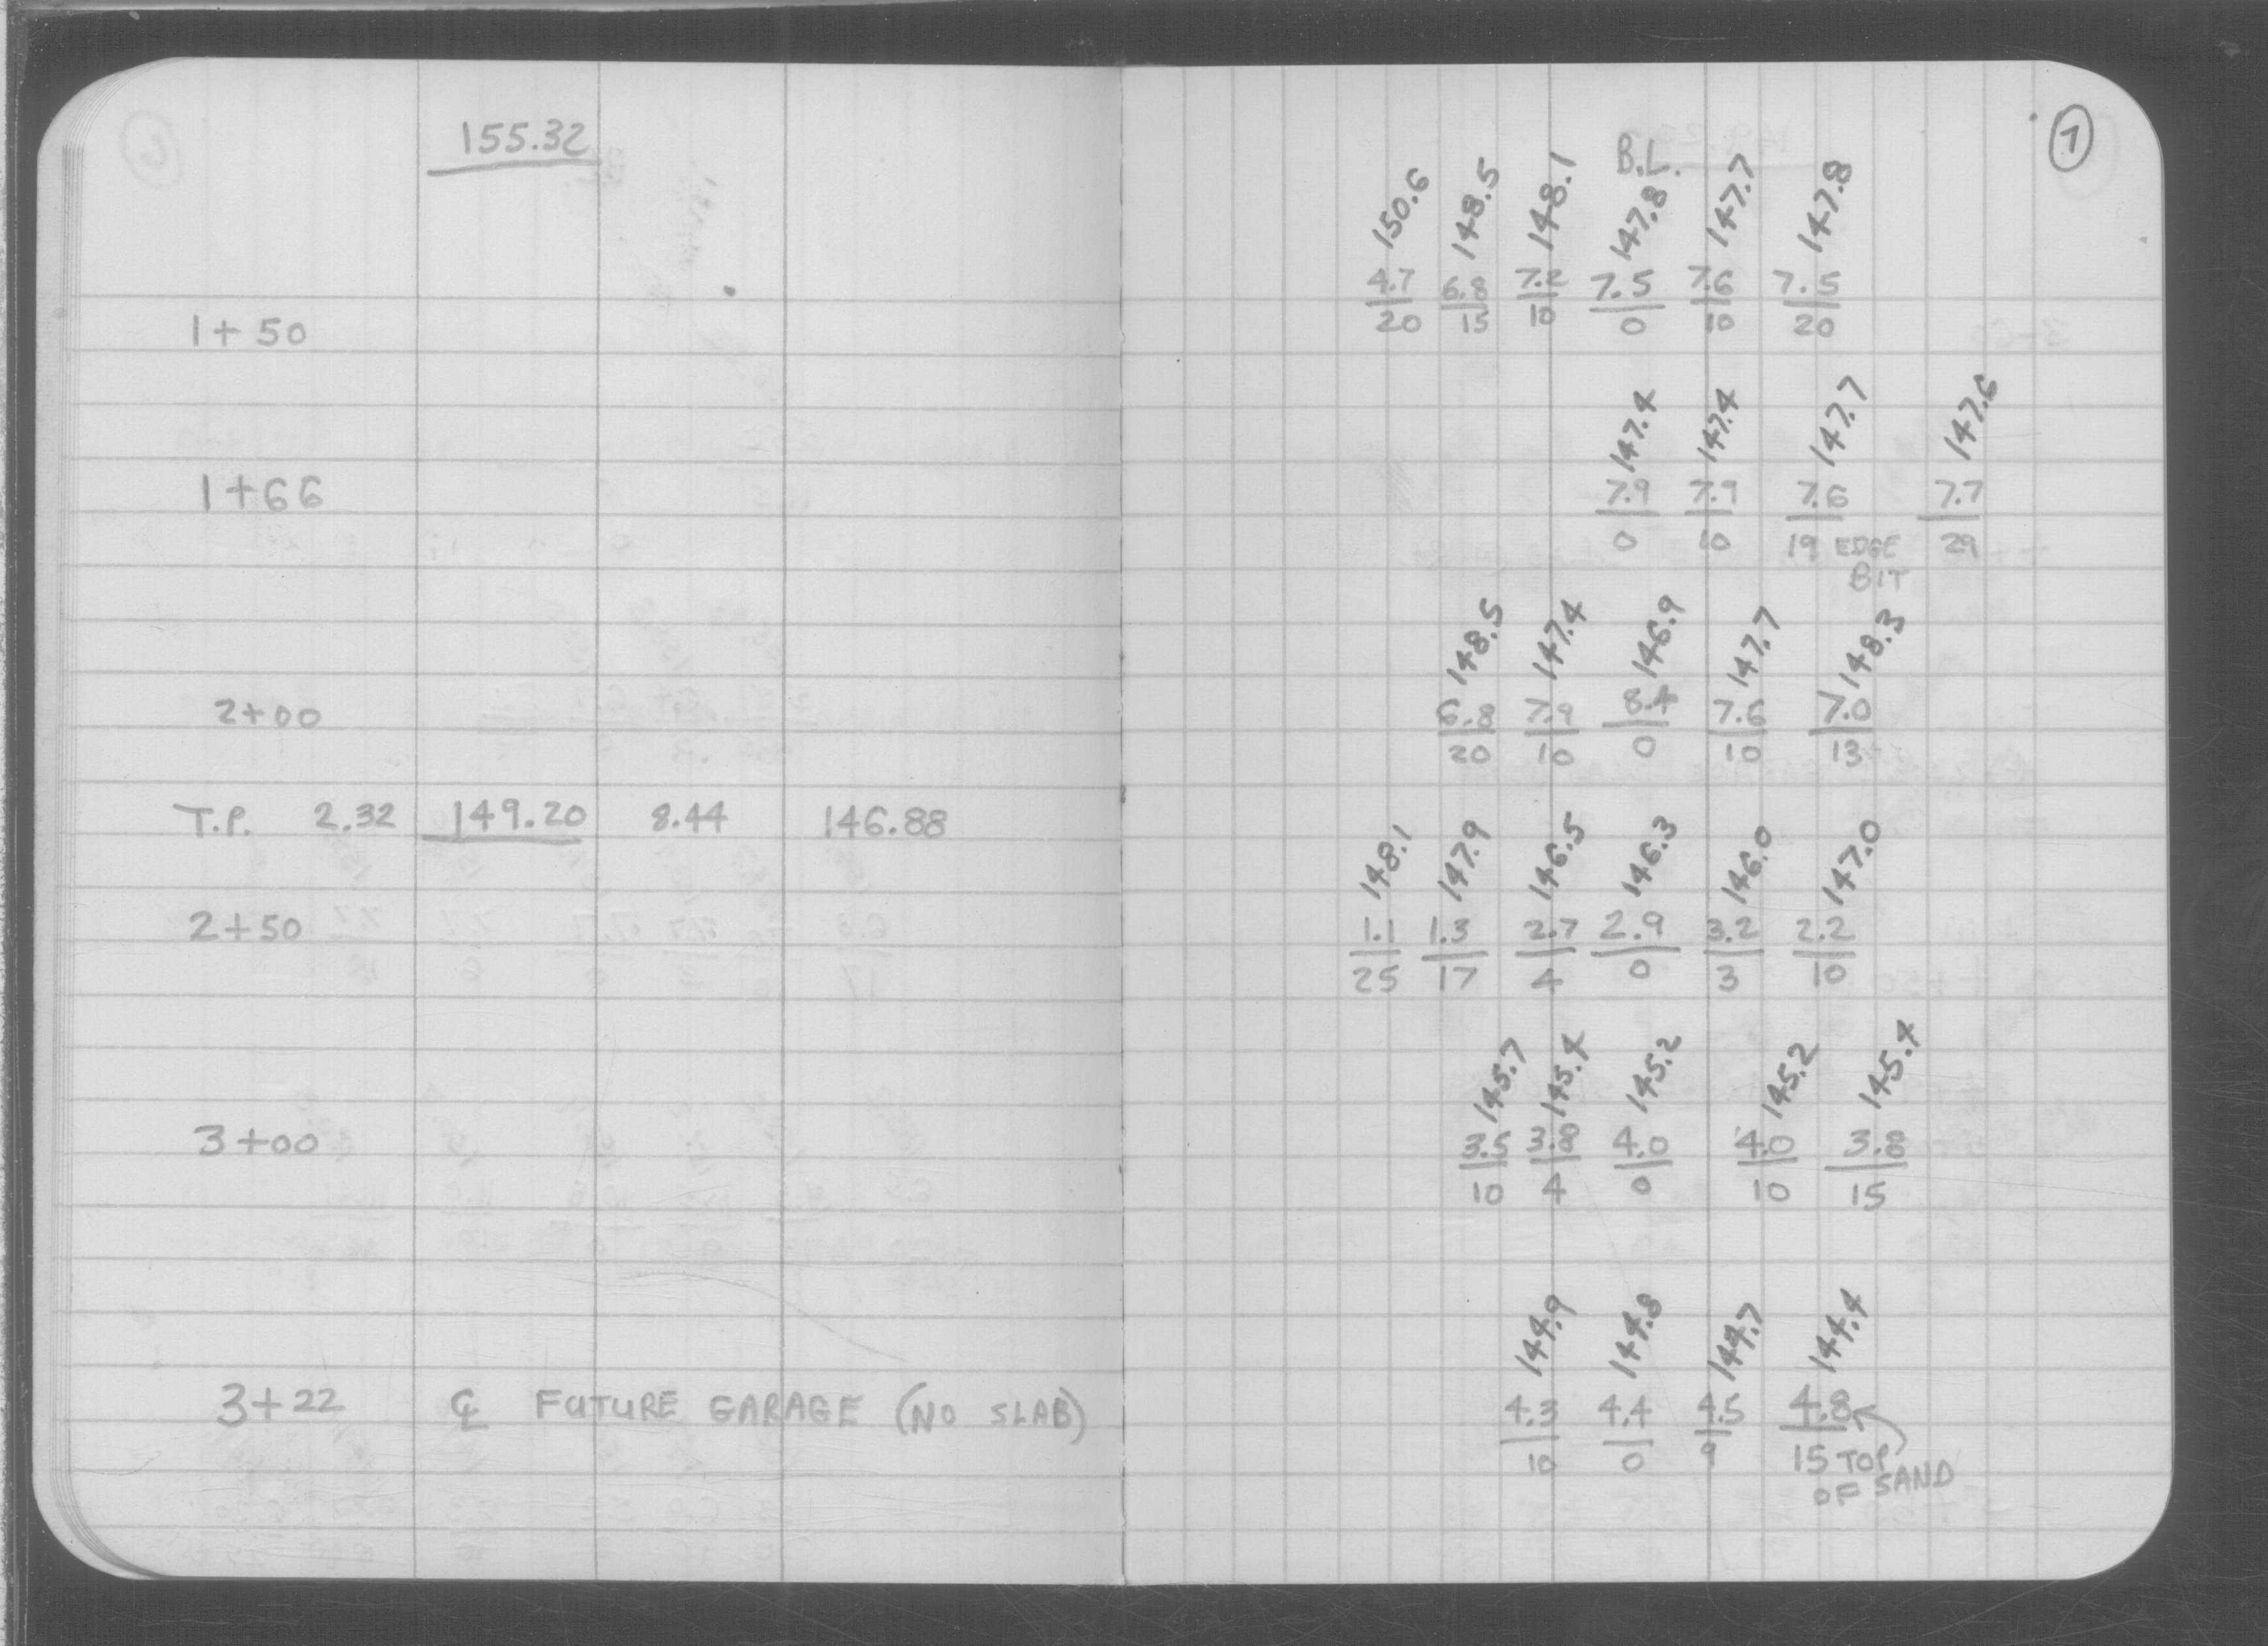 155.32
B.L.
7
150.6 148.5 148.1 147.8 147.7 147.8
4.7 6.8 7.2 7.5 7.6 7.5
1+50 20 15 10 0 10 20
147.4 147.4 147.7 147.6
1+66 7.9 7.9 7.6 7.7
0 10 19 EDGE 29
BIT
148.5 147.4 146.9 147.7 148.3
2+00 6.8 7.9 8.4 7.6 7.0
20 10 0 10 13
T.P. 2.32 149.20 8.44 146.88
148.1 147.9 146.5 146.3 146.0 147.0
2+50 1.1 1.3 2.7 2.9 3.2 2.2
25 17 4 0 3 10
145.7 145.4 145.2 145.2 145.4
3+00 3.5 3.8 4.0 4.0 3.8
10 4 0 10 15
144.9 144.8 144.7 144.4
3+22 ℄ FUTURE GARAGE (NO SLAB) 4.3 4.4 4.5 4.8
10 0 9 15 TOP
OF SAND